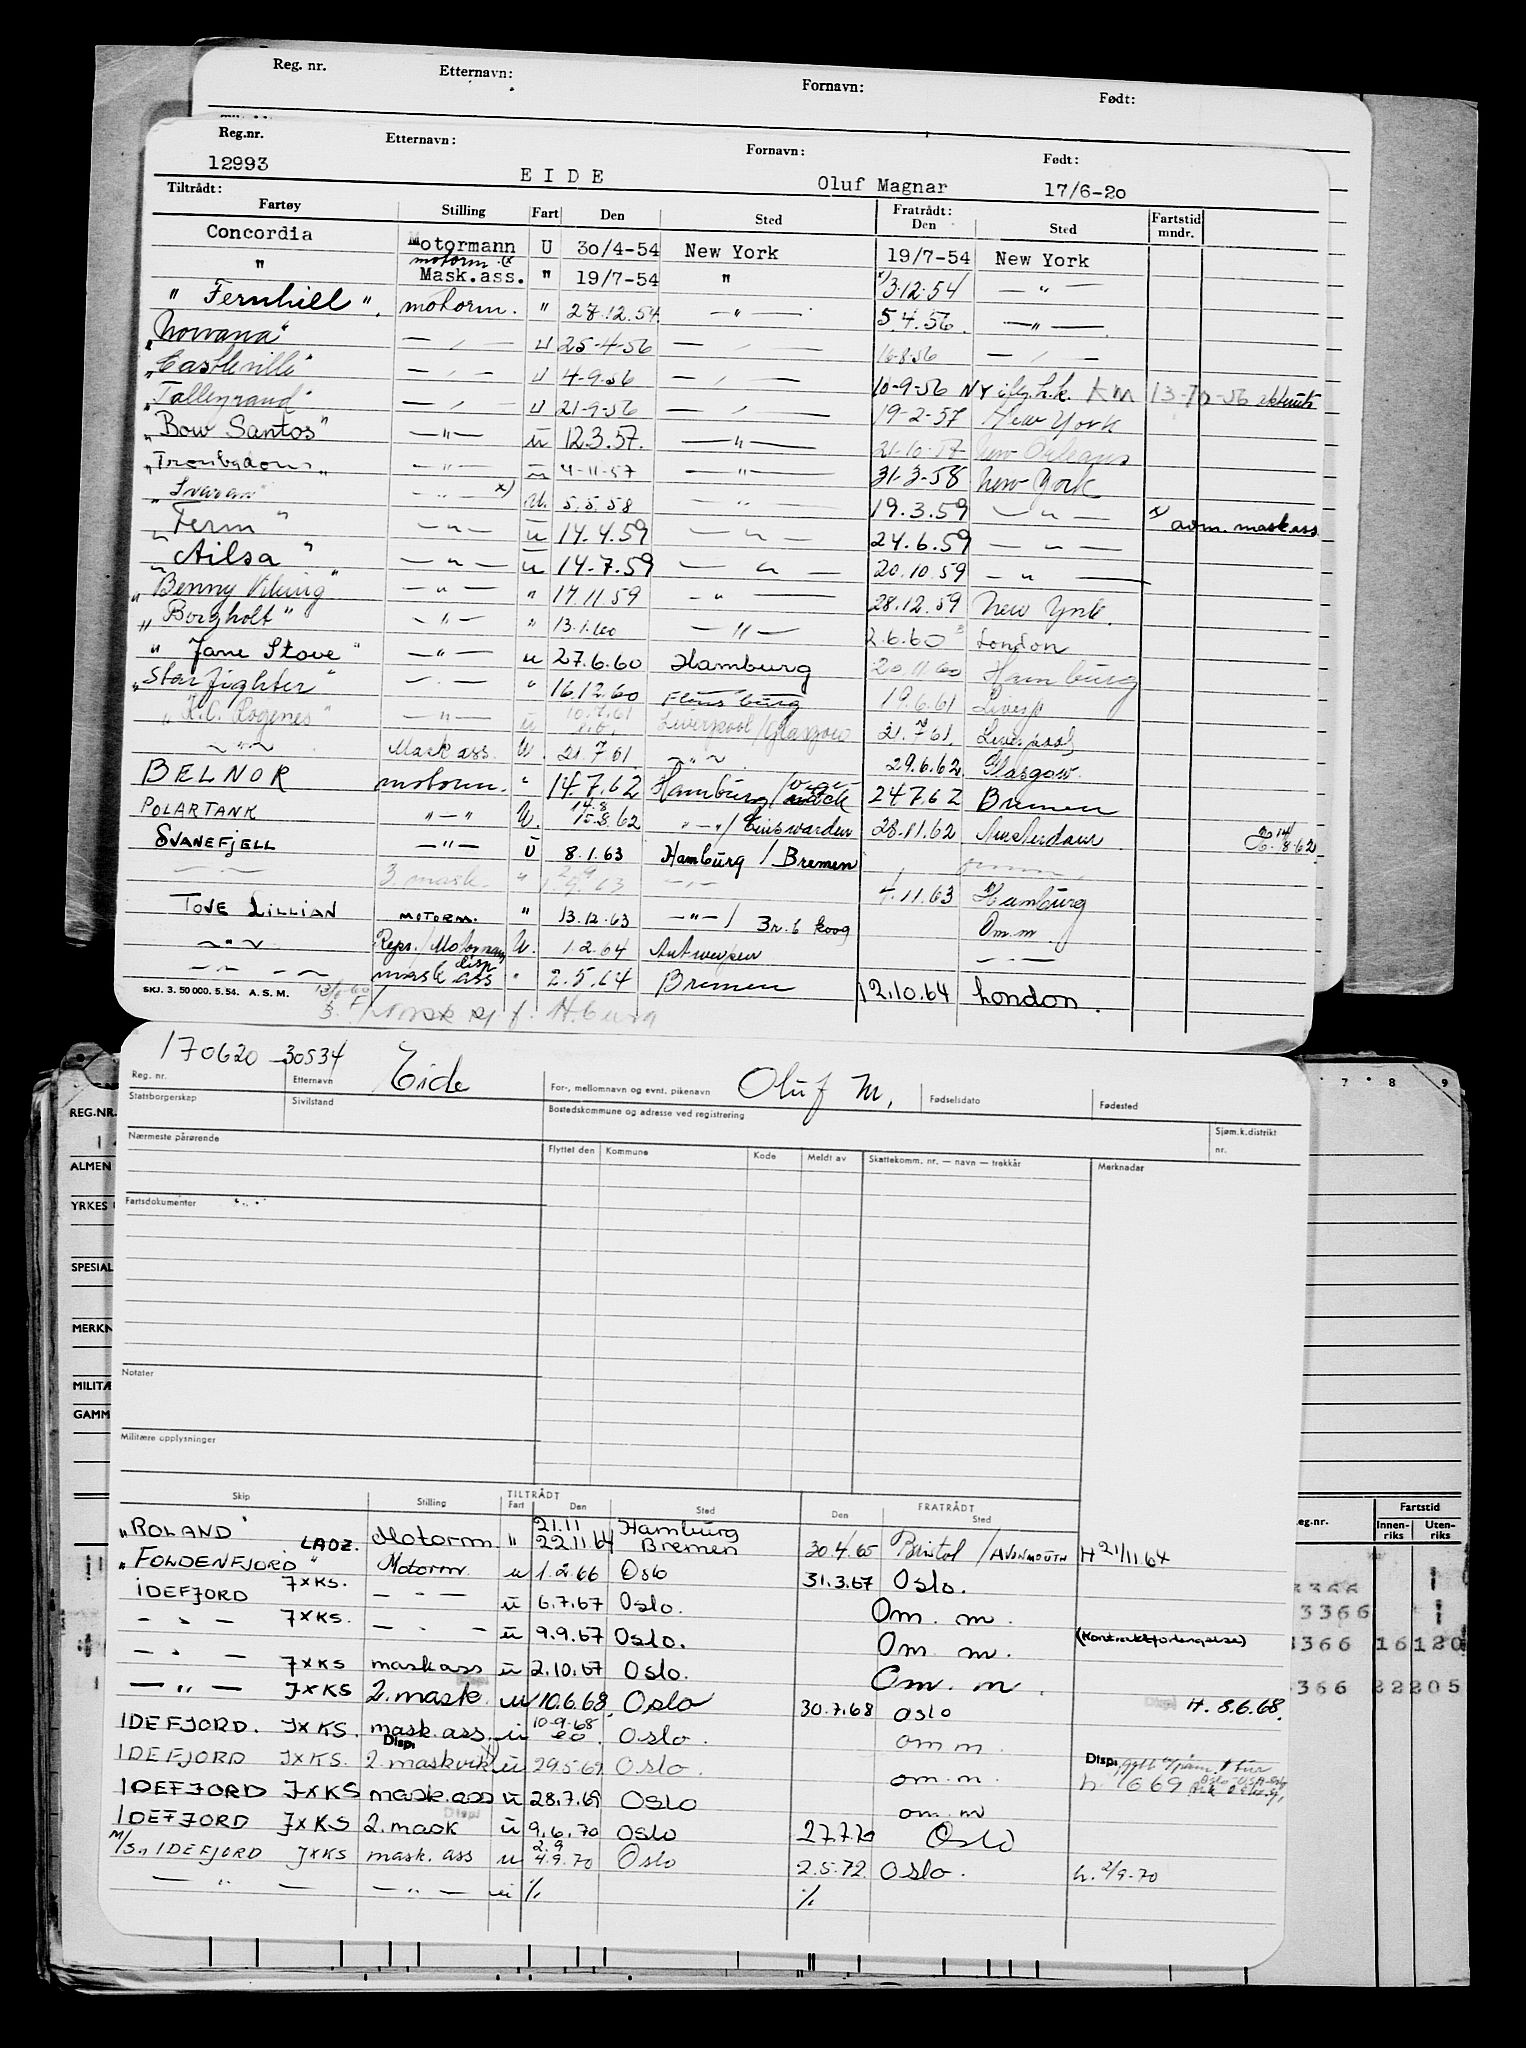 Reg. nr. Etternavn: Fornavn: Født:
Reg.nr. Etternavn: Fornavn: Født:
12993 EIDE Oluf Magnar 17/6-20
Tiltrådt: Fratrådt:
Fartøy Stilling Fart Den Sted Den Sted Fartstid mndr.
Concordia Motormann U 30/4-54 New York 19/7-54 New York
motorm. (x
" Mask.ass. " 19/7-54 " x/3.12.54 — " —
" Fernhill " . motorm. " 28.12.54 — " — 5.4.56 — " —
"Norvana" — , — u 25-4-56 — , — 16-8-56 — , —
"Castleville" — , — u 4-9-56 — , — 10-9-56 NY
"Talleyrand" — , — u 21-9-56 — , — 19-2-57 New York
"Bow Santos" — " — ū 12.3.57. — " — 21-10-57 New Orleans
"Troubadour" — " — ū 4-11-57 — " — 31-3-58 New York
"Ivaran" — " — x) U. 5.5.58 — " — 19.3.59 — " — x) avm. maskass
" Ferm " — " — ū 14.4.59 — " — 24.6.59 — " —
" Ailsa " — " — ū 14.7.59 — " — 20.10.59 — " —
"Benny Viking" — " — " 17.11.59 — " — 28.12.59 New York.
"Borgholt" — " — " 13.1.60 — " — 2.6.60 London
" Jane Stove " — " — u 27.6.60 Hamburg 20.11.60 Hamburg
"Star fighter" — . — " 16.12.60 Flensburg 19.6.61 Liverp
"K.C. Rogenes" — " — ū 10.7.61 Liverpool/Glasgow 21.7.61. Liverpool
~ " ~ Mask ass. U. 21.7.61 ~ " ~ 29.6.62. Glasgow.
BELNOR motorm. " 14.7.62 Hamburg/ 24.7.62 Bremen
POLARTANK " — " U. 14.8 15.8.62 " — "/ Einswarden 28.11.62 Amsterdam
SVANEFJELL — " — ū 8.1.63 Hamburg / Bremen omm.
— — 3. mask. " — " — 4.11.63 Hamburg
TOVE LILLIAN MOTORM. " 13.12.63 — " — / Br. b koog Om.m
~ " ~ Repr./Motorman U. 1.2.64 Antwerpen — . —
— " — mask disp ass " 2.5.64 Bremen 12.10.64 London.
SKJ. 3. 50 000. 5.54. A.S.M.
170620 – 30534 Eide Oluf M.
Reg. nr. Etternavn For-, mellomnavn og evnt. pikenavn Fødselsdato Fødested
Statsborgerskap Sivilstand Bostedskommune og adresse ved registrering Sjøm.k.distrikt nr.
Nærmeste pårørende Flyttet den Kommune Kode Meldt av Skattekomm. nr. — navn — trekkår Merknader
Fartsdokumenter
Notater
Militære opplysninger
TILTRÅDT FRATRÅDT
Skip Stilling Fart Den Sted Den Sted
"ROLAND" LAOZ. Motorm " 21.11 22.11.64 Hamburg Bremen 30.4.65 Bristol / AVONMOUTH H 21/11 64
"FOLDENFJORD" JXKS. Motorm u 1.2.66 Oslo 31.3.67 Oslo.
IDEFJORD JXKS. — " — ū 6.7.67 Oslo. Om. m.
— " — — . — ū 9.9.67 Oslo. Om. m. (Kontraktforlengelse)
— " — JXKS maskass ū 2.10.67 Oslo. Om. m.
— " — JXKS 2. mask. u 10.6.68. Oslo 30.7.68 Oslo H. 8.6.68.
IDEFJORD. JXKS. mask. ass. ū 10.9.68 Oslo. om m.
IDEFJORD JXKS. Disp. 2. maskvikt ū 29.5.69 Oslo. om. m. Disp.
IDEFJORD JXKS mask. ass ū 28.7.69 OSLO om. m
IDEFJORD JXKS Disp 2. mask ū 9.6.70 OSLO 27.7.70 Oslo
M/S. IDEFJORD JXKS mask. ass u 2.9 4.9.70 Oslo 2.5.72 Oslo. h. 2/9-70
— " — — " — ū % %
REG.NR.
ALMEN
YRKES
SPESIAL
MERKN
MILITÆ
GAMM
7 8 9
eg.nr. Fartstid
Innenriks Utenriks
3366
3366
3366 16120
3366 22205